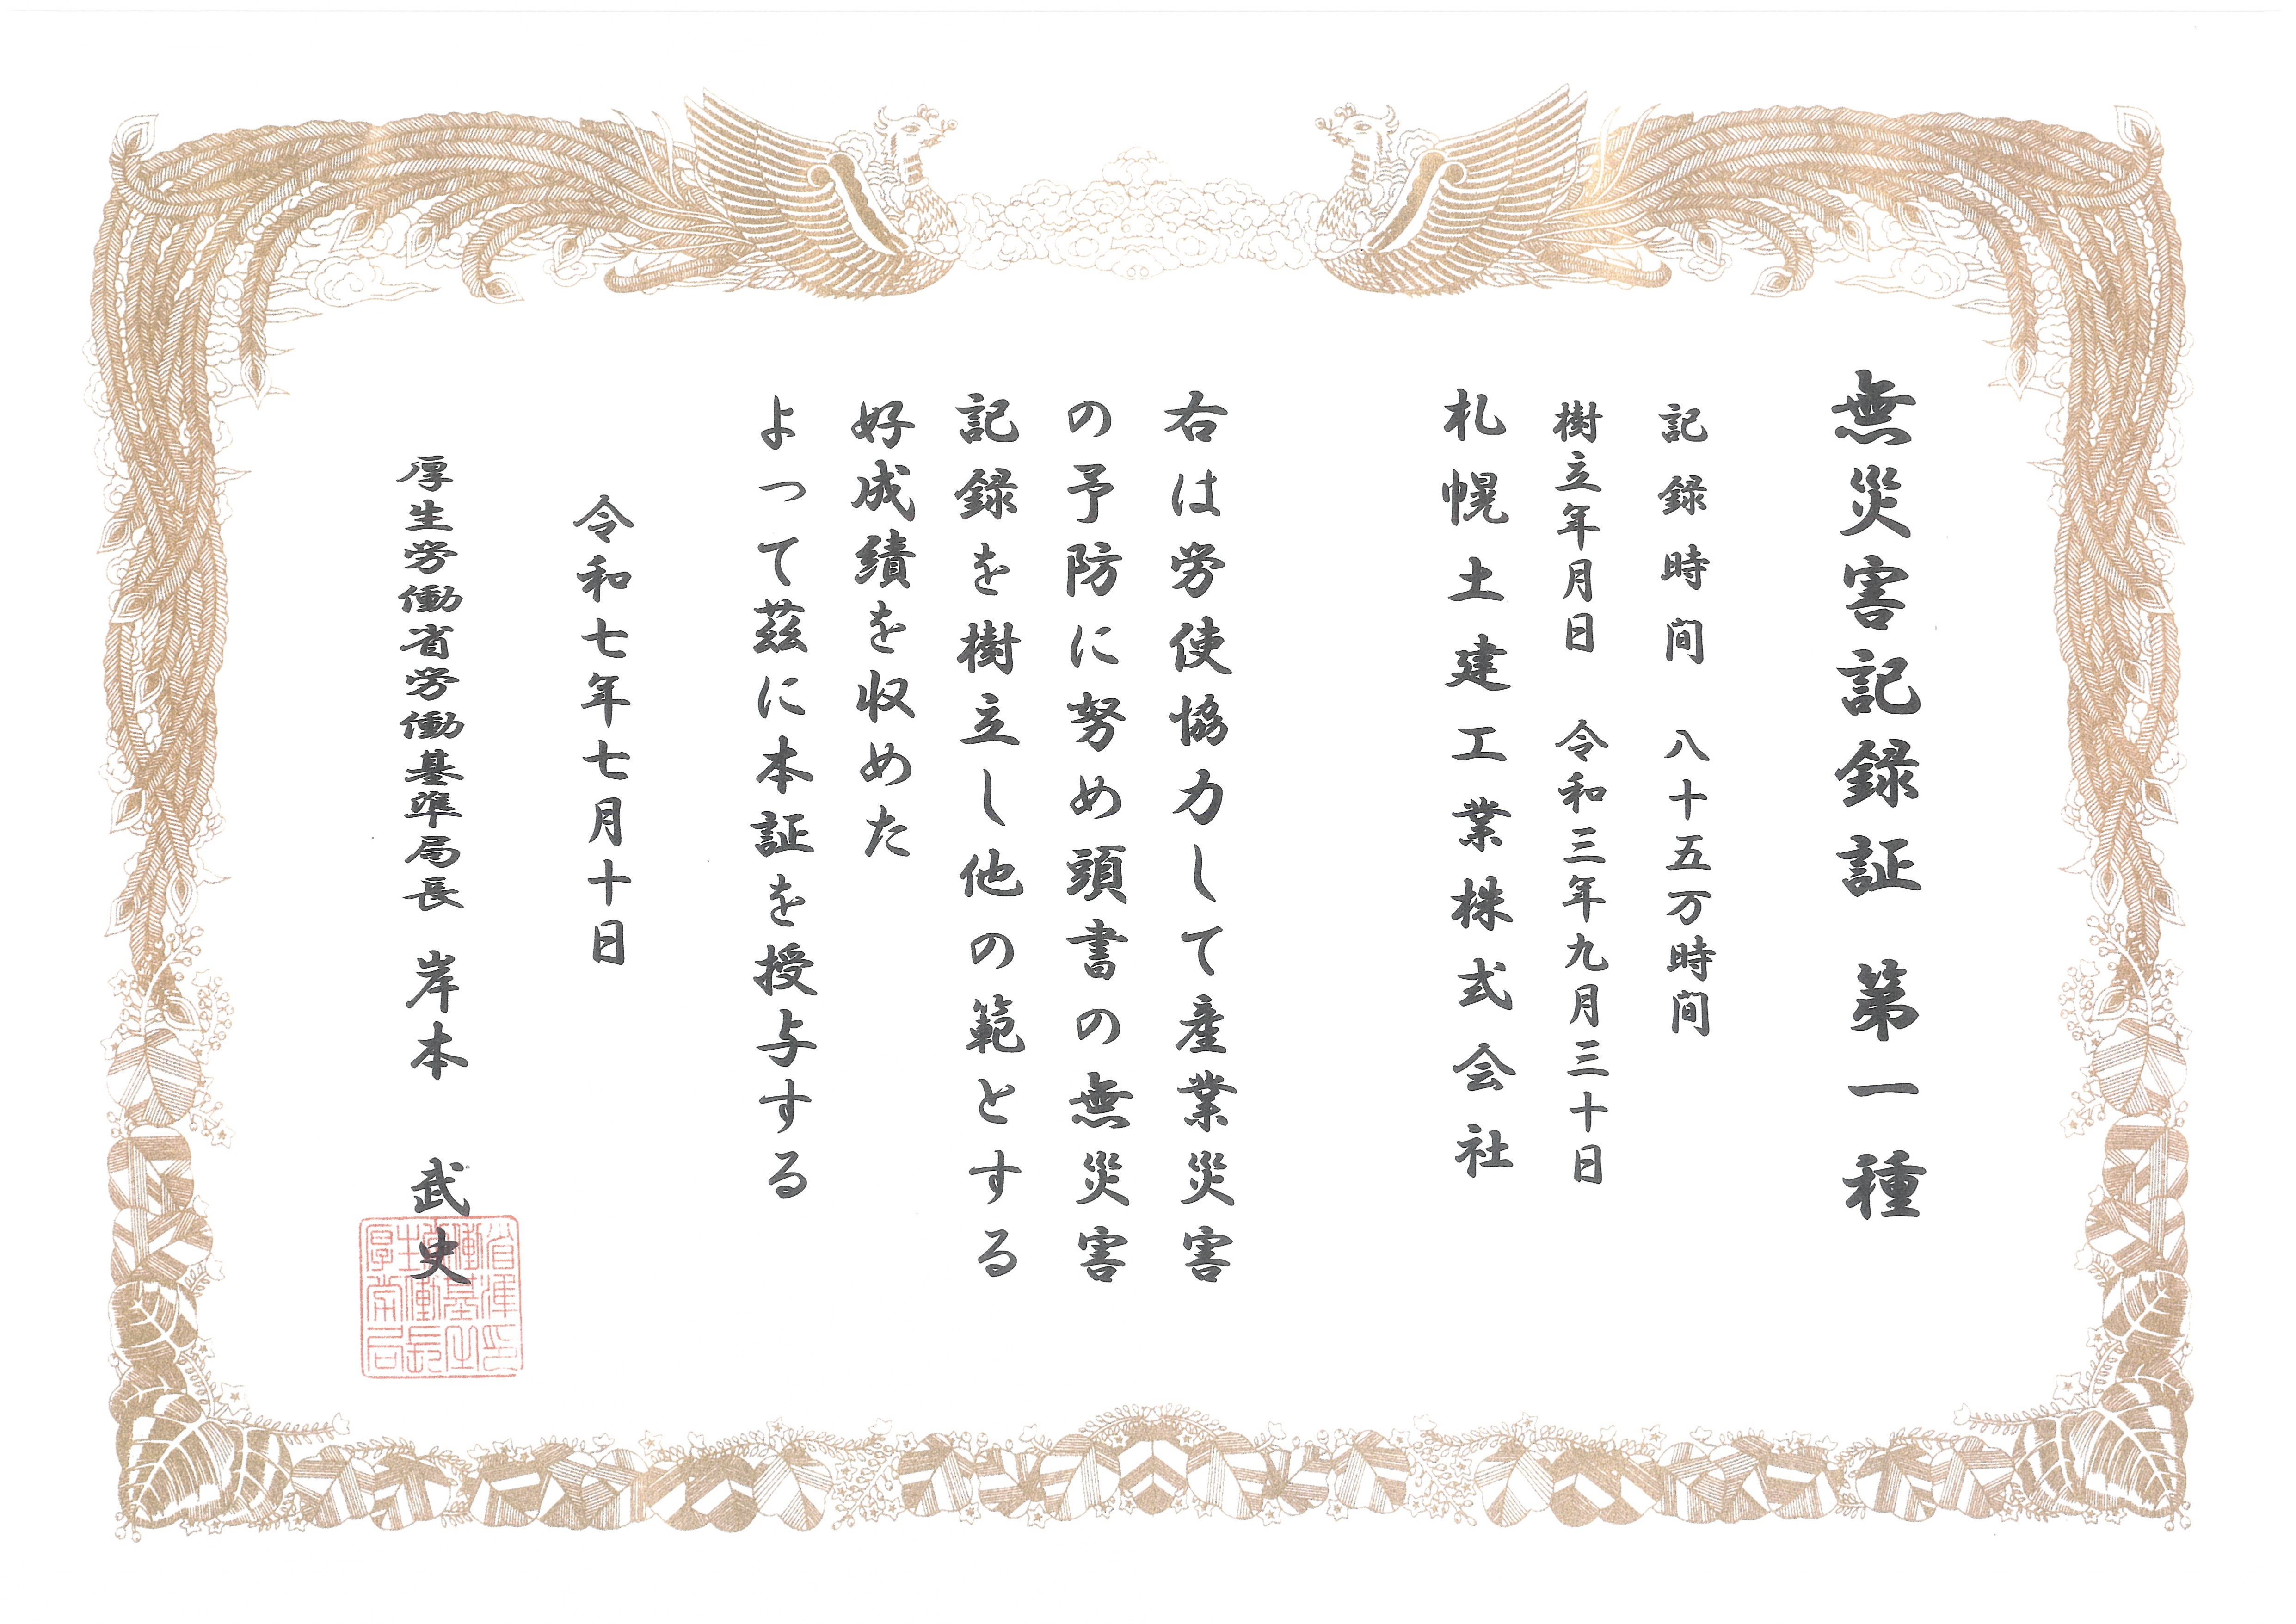 無災害記録証 第一種
記録時間 八十五万時間
樹立年月日 令和三年九月三十日
札幌土建工業株式会社
右は労使協力して産業災害
の予防に努め頭書の無災害
記録を樹立し他の範とする
好成績を収めた
よって茲に本証を授与する
令和七年七月十日
厚生労働省労働基準局長 岸本 武史